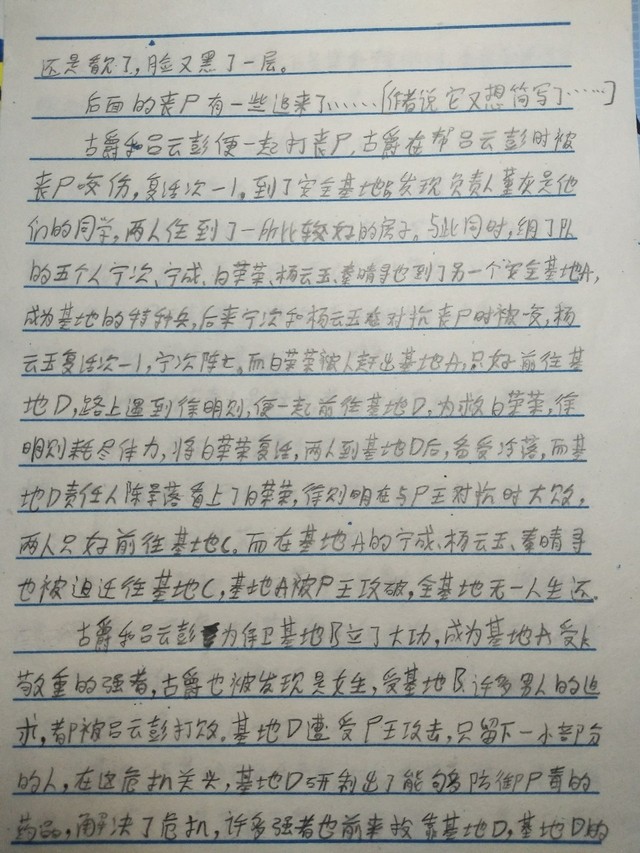 还是敷了，脸又黑了一层。
后面的丧尸有一些追来了……「作者说它又想简写了……」
古爵和吕云彭便一起打丧尸，古爵在帮吕云彭时被
丧尸咬伤，复活次-1。到了安全基地B发现负责人董灰是他
们的同学，两人住到了一所比较好的房子。与此同时，组了队
的五个人宁次、宁成、白荣荣、杨云玉、秦晴寻也到了另一个安全基地A，
成为基地的特种兵，后来宁次和杨云玉在对抗丧尸时被咬，杨
云玉复活次-1，宁次阵亡。而白荣荣被人赶出基地A，只好前往基
地D，路上遇到徐明则，便一起前往基地D，为救白荣荣，徐
明则耗尽体力，将白荣荣复活，两人到基地D后，备受冷落，而基
地D责任人陈景落看上了白荣荣，徐则明在与尸王对抗时大败，
两人只好前往基地C。而在基地A的宁成、杨云玉、秦晴寻
也被迫迁往基地C，基地A被尸王攻破，全基地无一人生还。
古爵和吕云彭为保卫基地B立了大功，成为基地A受人
敬重的强者，古爵也被发现是女生，受基地B许多男人的追
求，都被吕云彭打败。基地D遭受尸王攻击，只留下一小部分
的人，在这危机关头，基地D研制出了能够防御尸毒的
药品，解决了危机，许多强者也前来投靠基地D，基地D的